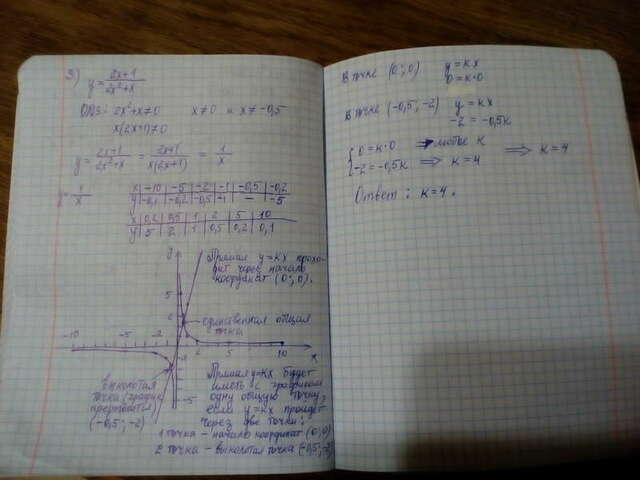 3) y = (2x+1)/(2x²+x)
ОДЗ: 2x²+x≠0   x≠0 и x≠-0,5
x(2x+1)≠0
y = (2x+1)/(2x²+x) = (2x+1)/(x(2x+1)) = 1/x
y = 1/x
x | -10 | -5 | -2 | -1 | -0,5 | -0,2
y | -0,1 | -0,2 | -0,5 | -1 | — | -5
x | 0,2 | 0,5 | 1 | 2 | 5 | 10
y | 5 | 2 | 1 | 0,5 | 0,2 | 0,1
y
Прямая y=kx прохо-
дит через начало
координат (0;0).
5
2
единственная общая
точка
-10 -5 -2 2 5 10 x
-5
выколотая
точка (график
прерывается)
(-0,5; -2)
Прямая y=kx будет
иметь с графиком
одну общую точку,
если y=kx пройдет
через две точки:
1 точка – начало координат (0;0)
2 точка – выколотая точка (-0,5;-2)
В точке (0;0) y=kx
0=k·0
В точке (-0,5; -2) y=kx
-2 = -0,5k
{ 0=k·0 → любое k
-2=-0,5k ⇒ k=4 ⇒ k=4
Ответ: k=4.